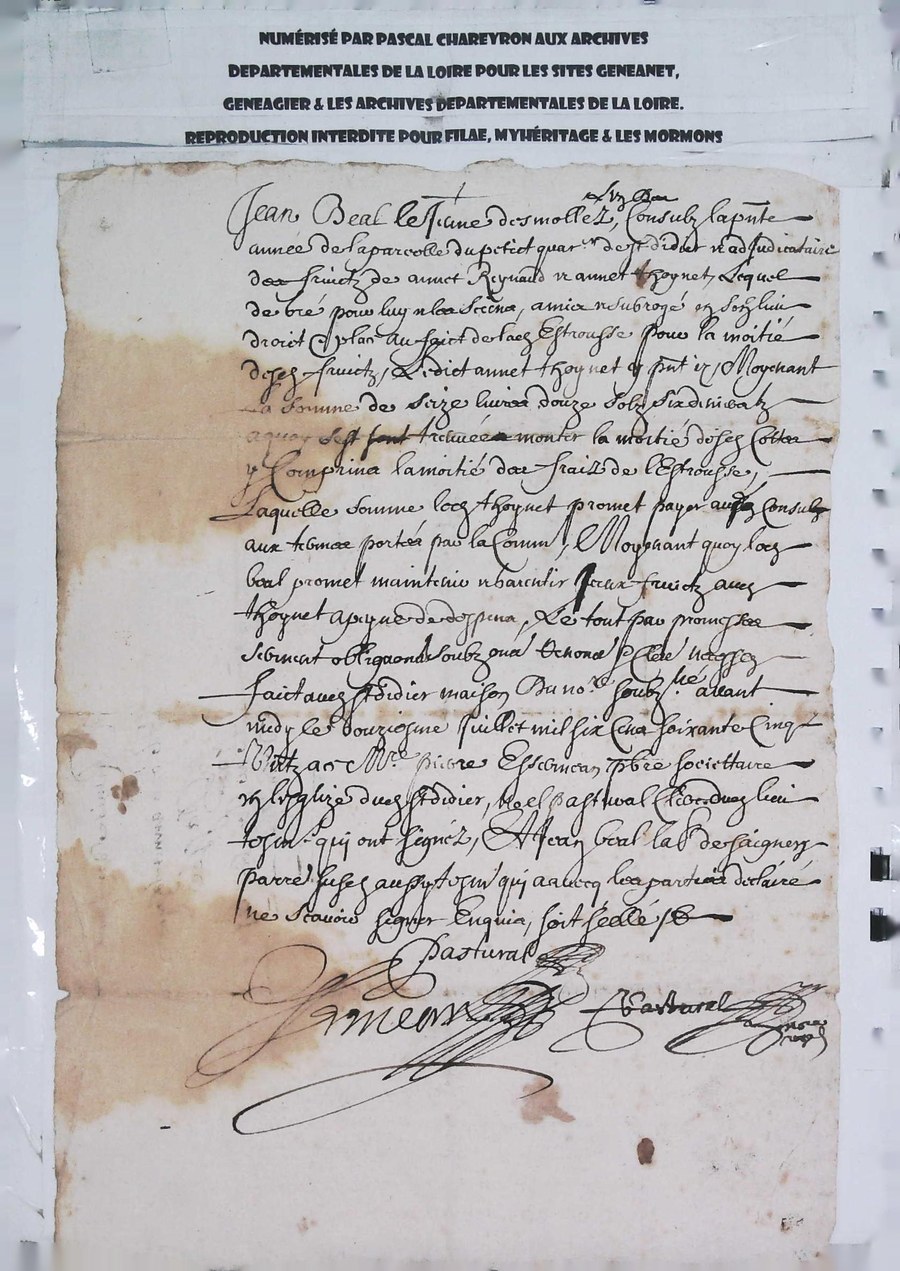 NUMÉRISÉ PAR PASCAL CHAREYRON AUX ARCHIVES
DEPARTEMENTALES DE LA LOIRE POUR LES SITES GENEANET,
GENEAGIER & LES ARCHIVES DEPARTEMENTALES DE LA LOIRE.
REPRODUCTION INTERDITE POUR FILAE, MYHÉRITAGE & LES MORMONS
Jean Beal le Jeune desmollez, Consulz la pnte
année de la parcelle du petict quar. de St didier & adjudicataire
des fruictz de annet Reynaud & annet thoynet, Lequel
de gré pour luy & les siens, a mis & subrogé en son lieu
droict & place au faict de lad Estrousse pour la moitié
desd fruictz, Ledict annet thoynet pnt Moyenant
La somme de seize livres douze solz six deniers
a quoy sest treuvée monter la moitié desd Cottes
y Comprins la moitié des frais de l'Estrousse,
Laquelle somme led thoynet promet payer aud Consulz
aux termes portés par la Comm, Moyenant quoy led
beal promet maintenir & garentir fruictz aud
thoynet a peyne de despens, Le tout par promesses
serment obligaons soubzons Renons & Cles necess
faict aud St didier maison Du no.re soubz.né avant
midy le Juillet mil six Cens soixante Cinq
Mre pierre pbre societtaire
en leglize dud St didier, noel Pastural Clerc dud lieu
tesm. qui ont signéz, Et Jean beal lab.r de
parre susd aussy tesm qui a avecq les parties déclaré
ne scavoir signer Enquis, soit seellé
Pastural
Pastural